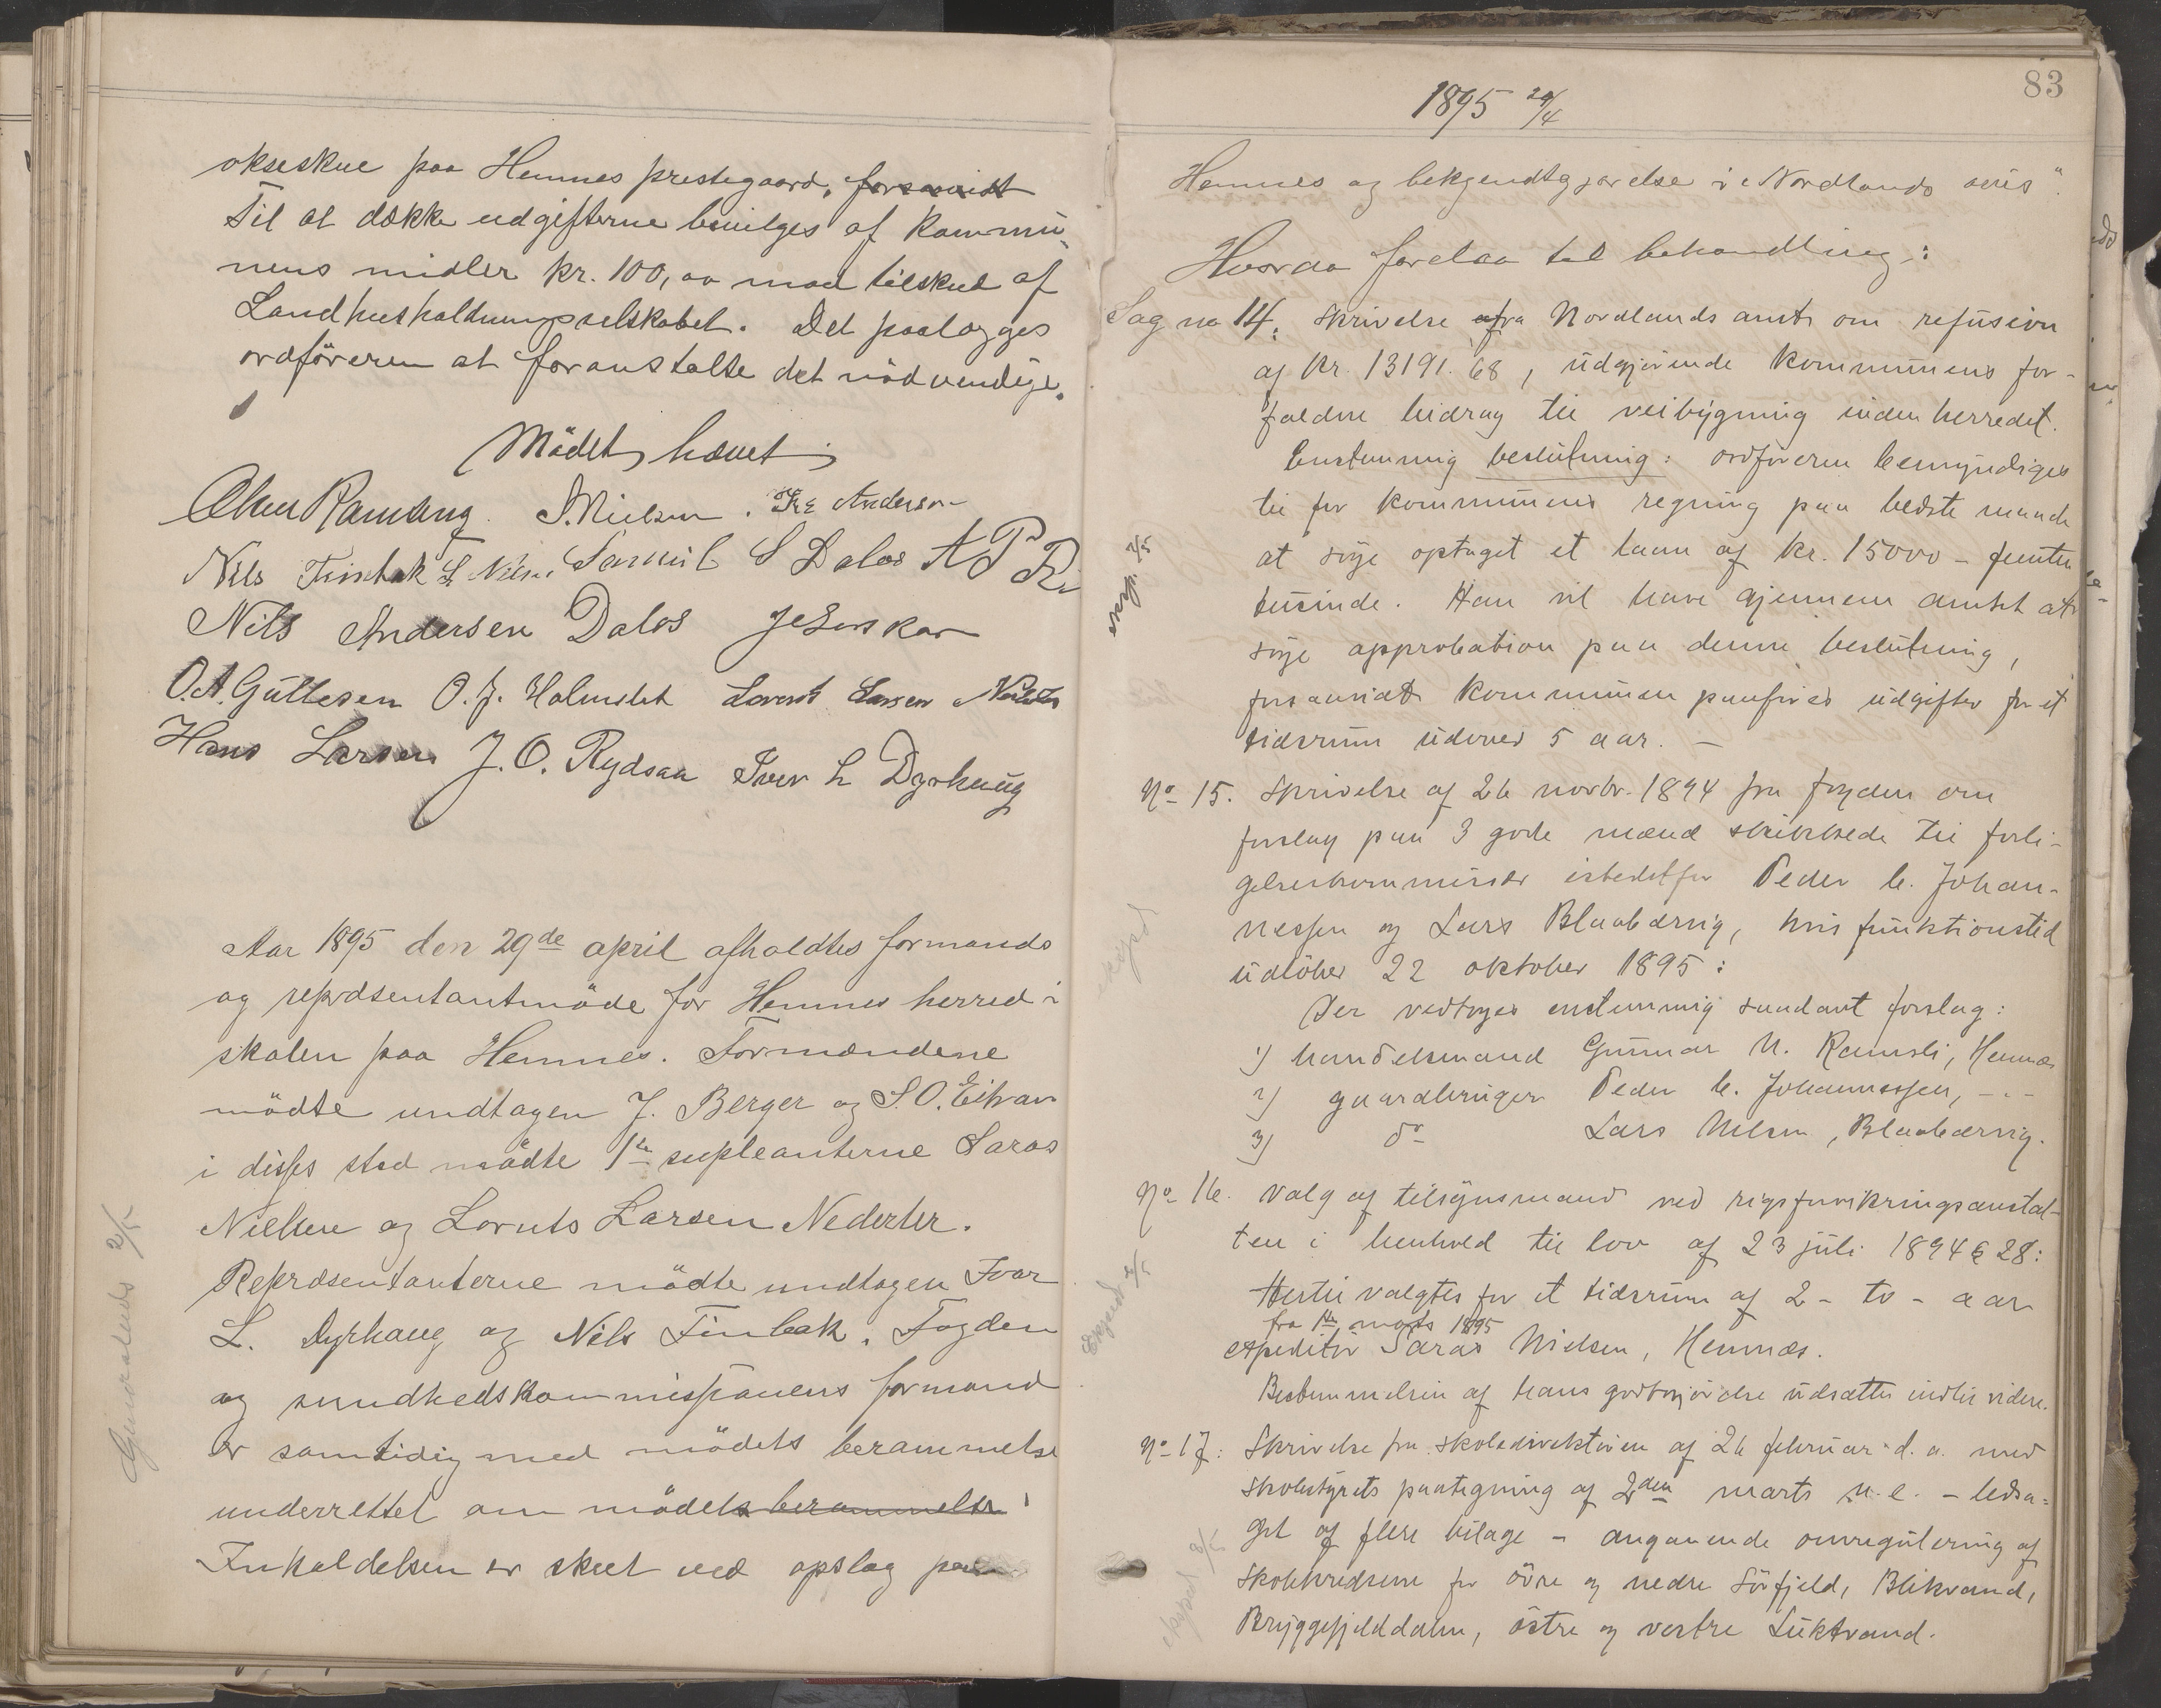 okseskue paa Hemnes prestegaard, forsaavidt
Til at dække udgifterne bevilges af kommu-
nens midler kr. 100,00 mod tilskud af
Landhusholdningsselskabet. Det paalægges
ordföreren at foranstalte det nödvendige.
Mödet hævet
S. Nielsen. Andersen
Nils Finbak L Nilsen Samuel S Dalos A P R
Nils Andersen Dalos
O.A. Guttesen O. J. Holmslet Lorents Larsen
Hans Larsen J. O. Rydsaa Iver L Dyrhaug
Aar 1895 den 29de april afholdtes formands
og repræsentantmöde for Hemnes herred i
skolen paa Hemnes. Formændene
mödte undtagen J. Berger og S. O.
i disses sted mödte 1ste supleanterne Saras
Nielsen og Lornts Larsen Nederler.
Repræsentanterne mödte undtagen Ivar
L. Dyrhaug og Nils Finbak. Fogden
og sundhedskommissionens formand
er samtidig med mödets berammelse
underrettet om mödets berammelse
Inkaldelsen er skeet ved opslag paa
2/5
83
1895 29/4
Hemnes og bekjendtgjørelse i "Nordlands avis".
Hvorda forelaa til behandling:
Sag no 14. Skrivelse fra Nordlands amt om refusion
af kr. 13191.68, udgjørende kommunens for-
faldne bidrag til veibygning inden herredet.
Enstemmig beslutning: ordføreren bemyndiges
til for kommunens regning paa bedste maade
at søge optaget et laan af kr. 15000 – femten
tusinde. Han vil have gjennem amtet at
søge approbation paa denne beslutning,
forsaavidt kommunen paaføres udgifter for et
tidsrum udover 5 aar. –
No 15. Skrivelse af 26 novbr. 1894 fra fogden om
forslag paa 3 gode mænd skikkede til forli-
gelseskommissær istedetfor Peder C. Johan-
nessen og Lars Blaabærvig, hvis funktionstid
udløber 22 oktober 1895:
Der vedtoges enstemmig saadant forslag:
1) handelsmand Gunnar N. Ramsli, Hemnæs
2) gaardbruger Peder C. Johannessen, -.-
3) do Lars Nilsen, Blaabærvig.
No 16. Valg af tilsynsmand ved rigsforsikringsanstal-
ten i henhold til lov af 23 juli 1894 § 28:
Hertil valgtes for et tidsrum af 2 – to – aar
fra 1ste marts 1895
expeditør Saras Nielsen, Hemnæs.
Bestemmelsen af hans godtgjørelse udsættes indtil videre.
No 17: Skrivelse fra skoledirektøren af 26 februar d. a. med
skolestyrets paategning af 2den marts n. e. – ledsa-
get af flere bilage – angaaende omregulering af
skolekredsene for övre og nedre Sörfjeld, Blikvand,
Bryggefjelddalen, östre og vestre Luktvand.
exp. 2/5
exped
Exped 2/5
exped 2/5